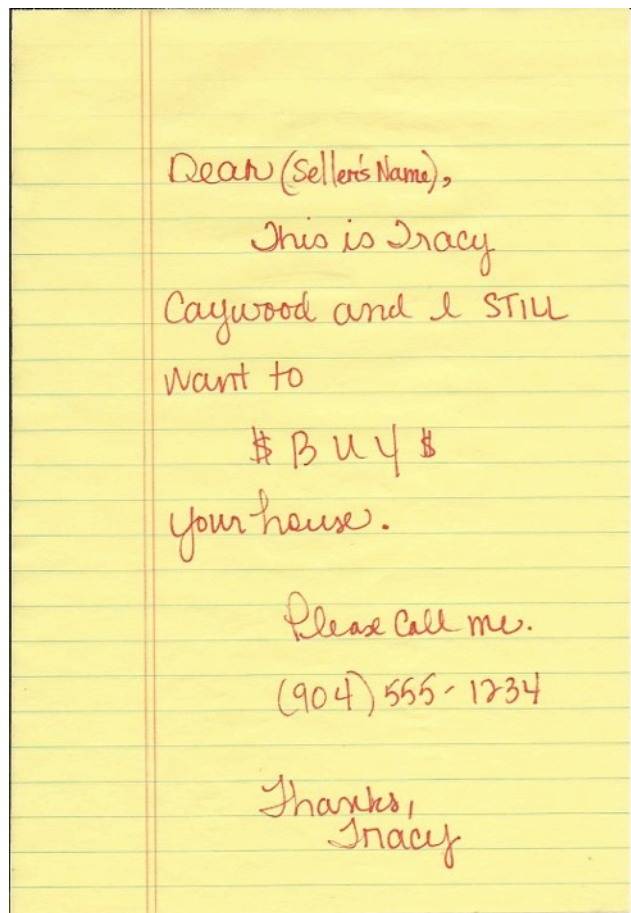 Dear (Seller's Name),
This is Tracy
Caywood and I STILL
want to
$ BUY $
your house.
Please Call me.
(904) 555-1234
Thanks,
Tracy